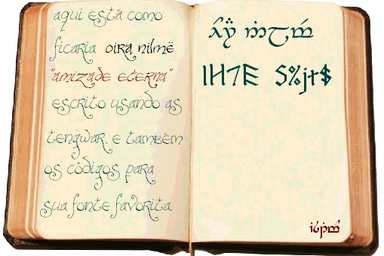 aqui está como
ficaria oira nilmë
"amizade eterna"
escrito usando as
tengwar. e também
os códigos para
sua fonte favorita.
lH7E 5%jt$